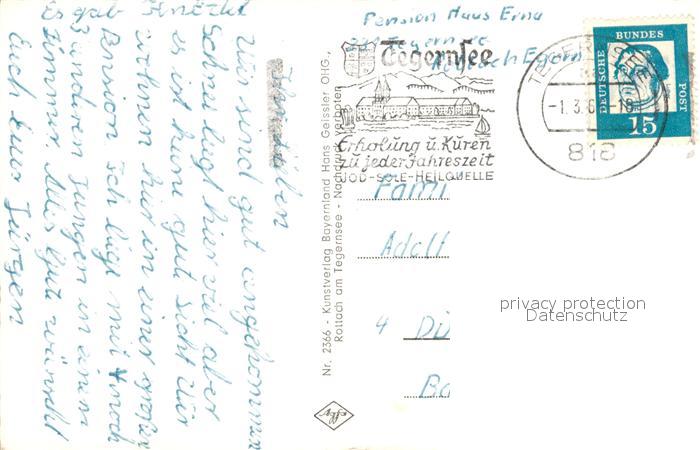 Ihr Lieben
Wir sind gut angekommen
Schnee liegt hier viel aber
es ist heute gut Sicht. Wir
wohnen hier in einer großen
Pension. Ich liege mit noch
3 anderen Jungen in einem
Zimmer. Alles Gute wünscht
Euch Euer Jürgen
Es gab
Pension Haus Erna
Tegernsee
Rottach Egern
Tegernsee
Erholung u. Kuren
zu jeder Jahreszeit
JOD-SOLE-HEILQUELLE
TEGERNSEE
-1.3.6
818
DEUTSCHE BUNDESPOST
15
Nr. 2366 - Kunstverlag Bayernland Hans Geissler OHG.,
Rottach am Tegernsee - Nachdruck verboten
Agfa
Fami
Adolf
4 Dü
Ba
privacy protection
Datenschutz